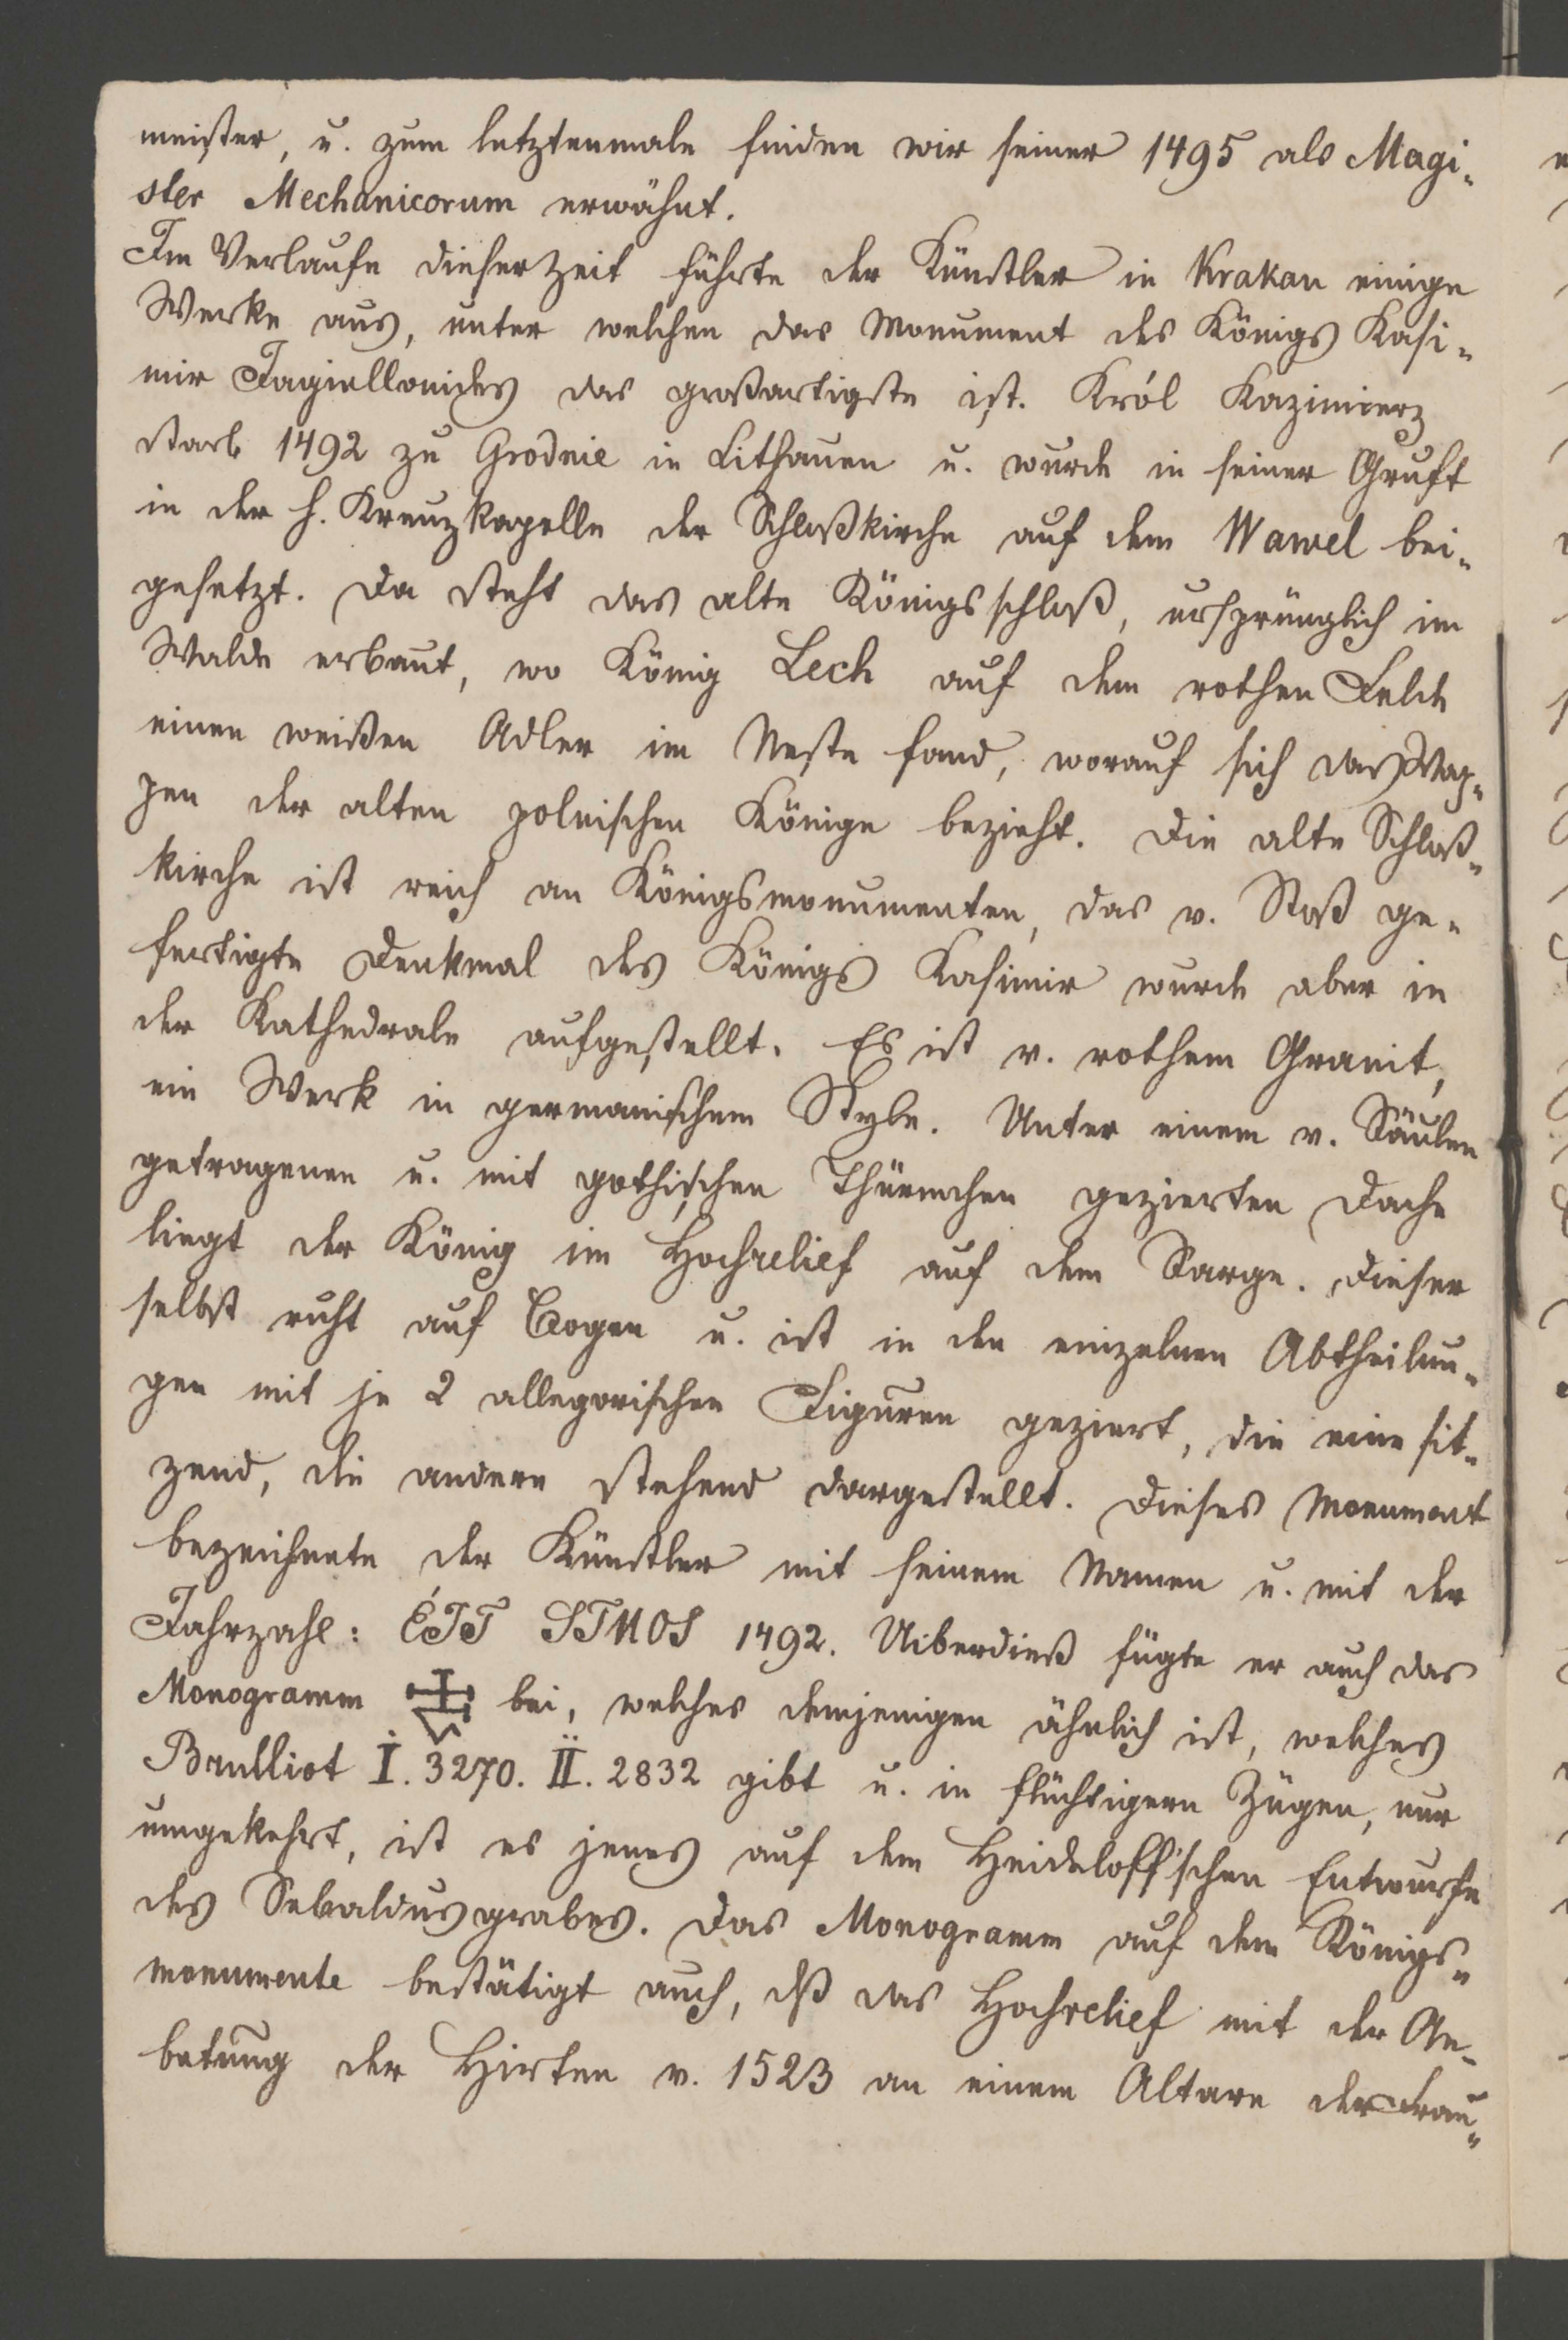 meister, u. zum letztenmale finden wir seiner 1495 als Magi-
ster Mechanicorum erwähnt.
Im Verlaufe dieser Zeit führte der Künstler in Krakau einige
Werke aus, unter welchen das Monument des Königs Kasi-
mir Jagiellonides das großartigste ist. Król Kazimierz
starb 1492 zu Grodnie in Lithauen u. wurde in seiner Gruft
in der h. Kreuzkapelle der Schloßkirche auf dem Wawel bei-
gesetzt. Da steht das alte Königsschloß, ursprünglich im
Walde erbaut, wo König Lech auf dem rothen Felde
einen weißen Adler im Neste fand, worauf sich das Wap-
pen der alten polnischen Könige bezieht. Die alte Schloß-
kirche ist reich an Königsmonumenten, das v. Stoß ge-
fertigte Denkmal des Königs Kasimir wurde aber in
der Kathedrale aufgestellt. Es ist v. rothem Granit,
ein Werk in germanischem Style. Unter einem v. Säulen
getragenen u. mit gothischen Thürmchen gezierten Dache
liegt der König im Hochrelief auf dem Sarge. Dieser
selbst ruht auf Bogen u. ist in den einzelnen Abtheilun-
gen mit je 2 allegorischen Figuren geziert, die eine sit-
zend, die andere stehend dargestellt. Dieses Monument
bezeichnete der Künstler mit seinem Namen u. mit der
Jahrzahl: STUOS 1492. Uiberdieß fügte er auch das
Monogramm bei, welches demjenigen ähnlich ist, welches
Brulliot I. 3270. II. 2832 gibt u. in flüchtigern Zügen, nur
umgekehrt, ist es jenes auf dem Heideloff'schen Entwurfe
des Sebaldusgrabes. Das Monogramm auf dem Königs-
monumente bestätigt auch, dß das Hochrelief mit der An-
betung der Hirten v. 1523 an einem Altare der Frau-